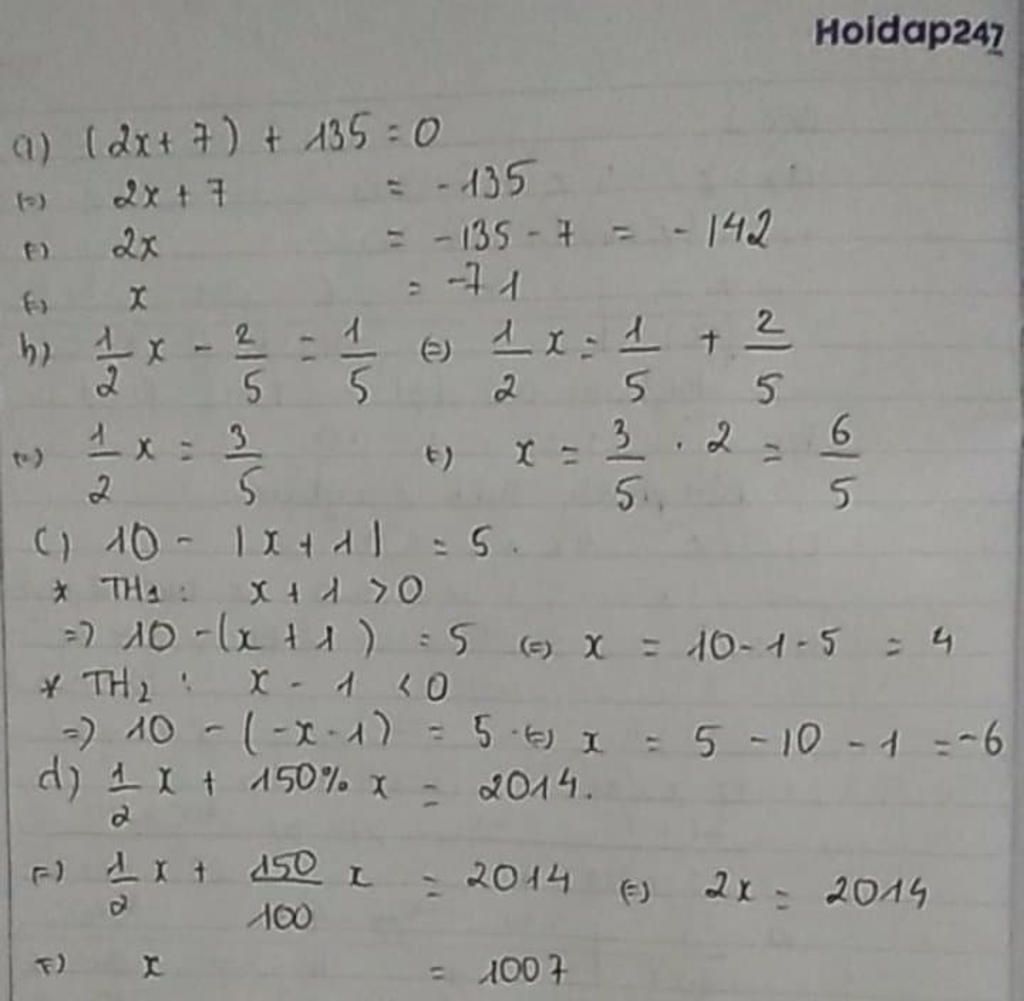 Hoidap247
a) (2x + 7) + 135 = 0
(=) 2x + 7 = -135
(=) 2x = -135 - 7 = -142
(=) x = -71
b) 1/2 x - 2/5 = 1/5 (=) 1/2 x = 1/5 + 2/5
(=) 1/2 x = 3/5 (=) x = 3/5 . 2 = 6/5
c) 10 - |x + 1| = 5.
* TH1: x + 1 > 0
=> 10 - (x + 1) = 5 (=) x = 10 - 1 - 5 = 4
* TH2: x - 1 < 0
=> 10 - (-x - 1) = 5 (=) x = 5 - 10 - 1 = -6
d) 1/2 x + 150% x = 2014.
(=) 1/2 x + 150/100 x = 2014 (=) 2x = 2014
(=) x = 1007